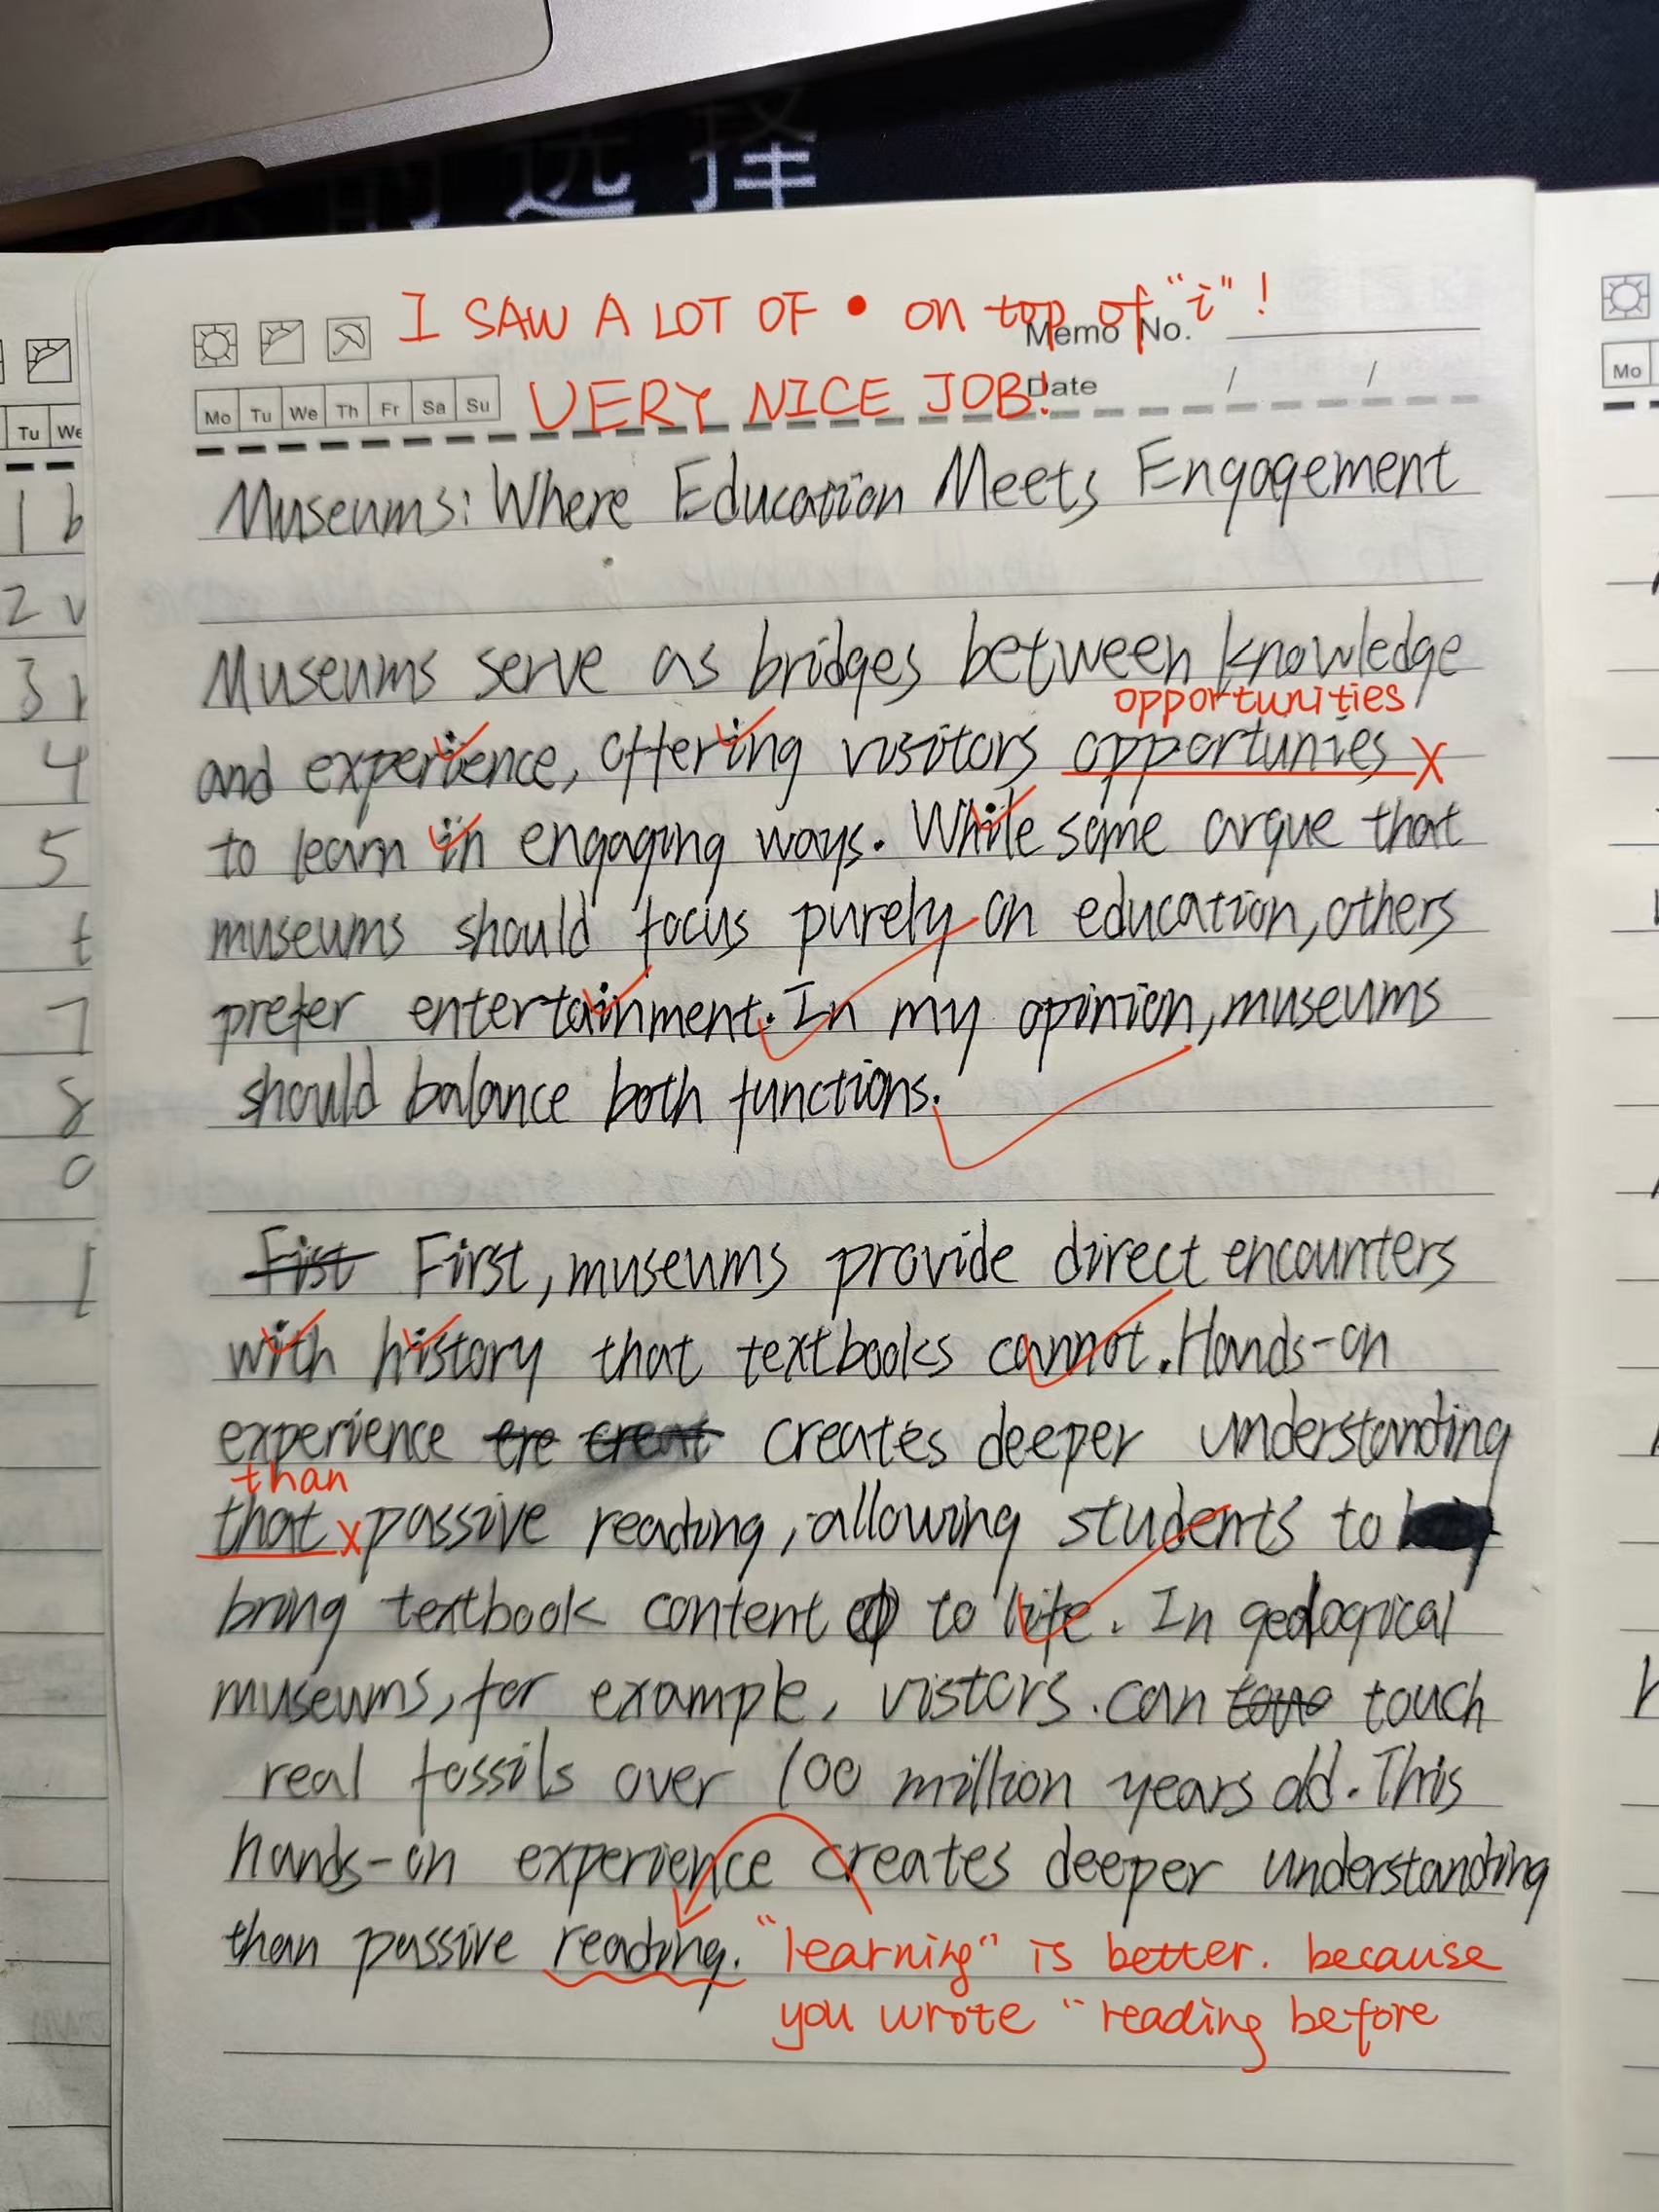 的选择
I SAW A LOT OF • on top of "i"!
Memo No.
Mo Tu We Th Fr Sa Su
VERY NICE JOB!
Date / /
Museums: Where Education Meets Engagement
Museums serve as bridges between knowledge
opportunities
and experience, offering visitors opportunies x
to learn in engaging ways. While some argue that
museums should focus purely on education, others
prefer entertainment. In my opinion, museums
should balance both functions.
Fist First, museums provide direct encounters
with history that textbooks cannot. Hands-on
experience cre creat creates deeper understanding
than
that x passive reading, allowing students to
bring textbook content to life. In geological
museums, for example, vistors can touch
real fossils over 100 million years old. This
hands-on experience creates deeper understanding
than passive reading. "learning" is better. because
you wrote "reading before
Tu We
1 b
2 v
3
4
5
t
7
8
0
Mo